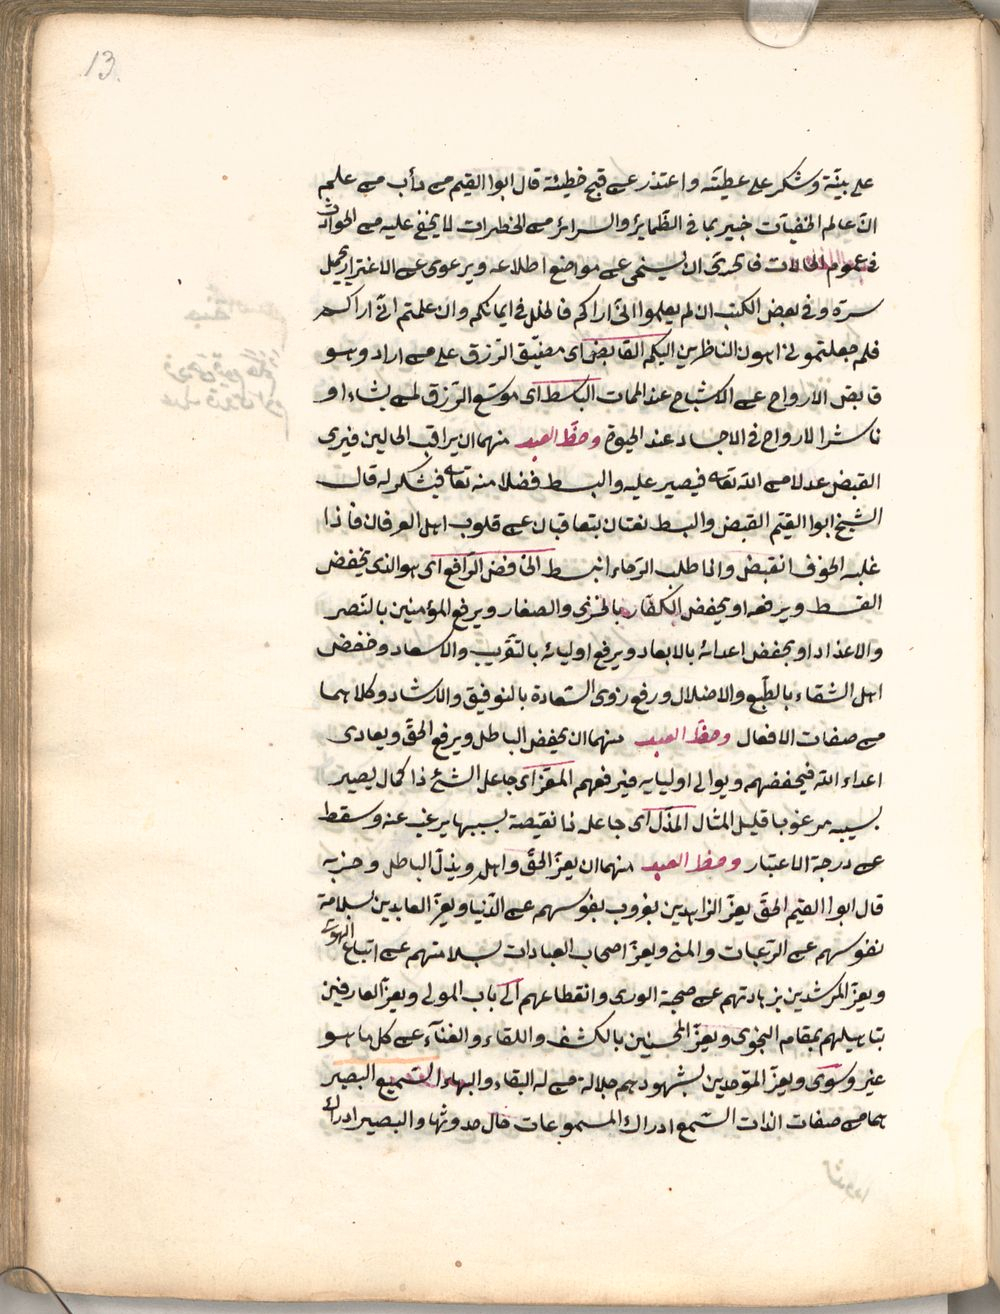 13.
على بينة وشكر على عطيته واعتذر عن قبح خطيئة قال ابوا القيم من دأب من علم
انّ عالم الخفيات خبير بما فى الضّماير والسراير من الخطرات لا يخفى عليه من الحوادث
فى عموم الحالات فالحرىّ ان يستحى عن مواضع اطلاعه ويرعوى عن الاغترار بجميل
ستره وفى بعض الكتب ان لم يعلموا انّى اراكم فالخلل فى ايمانكم وان علمتم انّى اراكم
فلم جعلتمونى اهون الناظرين اليكم القابض اى مضيّق الرّزق على من اراد وهو
قابض الارواح عن الاشباح عند الممات الباسط اى موسّع الرّزق لمن يشاء او
ناشر الارواح فى الاجساد عند الحيوة وحظّ العبد منهما ان يراقب الحالين فيرى
القبض عدلا من الله تعالى فيصبر عليه والبسط فضلا منه تعالى فيشكر له قال
الشيخ ابوا القيّم القبض والبسط نعتان يتعاقبان على قلوب اهل العرفان فاذا
غلبه الخوف انقبض واذا طلب الرّجاء انبسط الخافض الرّافع اى هو الذى يخفض
القسط ويرفعه او يخفض الكفّار بالخزى والصغار ويرفع المؤمنين بالنّصر
والاعذاد او يخفض اعدائه بالابعاد ويرفع اوليائه بالتقريب والاسعاد وخفض
اهل الشقاء بالطّبع والاضلال ورفع ذوى السّعادة بالتوفيق والارشاد وكلاهما
من صفات الافعال وحظّ العبد منهما ان يخفض الباطل ويرفع الحقّ ويعادى
اعداء الله فيخفضهم ويوالى اوليايه فيرفعهم المعزّ اى جاعل الشئ ذا كمال يصير
بسببه مرغوبا قليل المثال المذلّ اى جاعله ذا نقيصة بسببها يرغب عنه وسقط
عن درجة الاعتبار وحظ العبد منهما ان يعزّ الحقّ واهله ويذلّ الباطل وحزبه
قال ابوا القيم الحقّ يعزّ الزاهدين بعزوب نفوسهم عن الدّنيا ويعزّ العابدين بسلامة
نفوسهم عن الرّعبات والمنى ويعزّ اصحاب العبادات بسلامتهم عن اتباع الهوى
ويعزّ المرشدين بزهادتهم عن صحبة الورى وانقطاعهم الى باب المولى ويعزّ العارفين
بتاهيلهم بمقام النجوى ويعزّ المحبين بالكشف واللقاء والغناء عن كل ما هو
غير وسوى ويعزّ الموّحدين بشهودهم جلالة من له البقاء والبهاء السّميع البصير
هما من صفات الذات السّمع ادراك المسموعات حال حدوثها والبصير ادراك